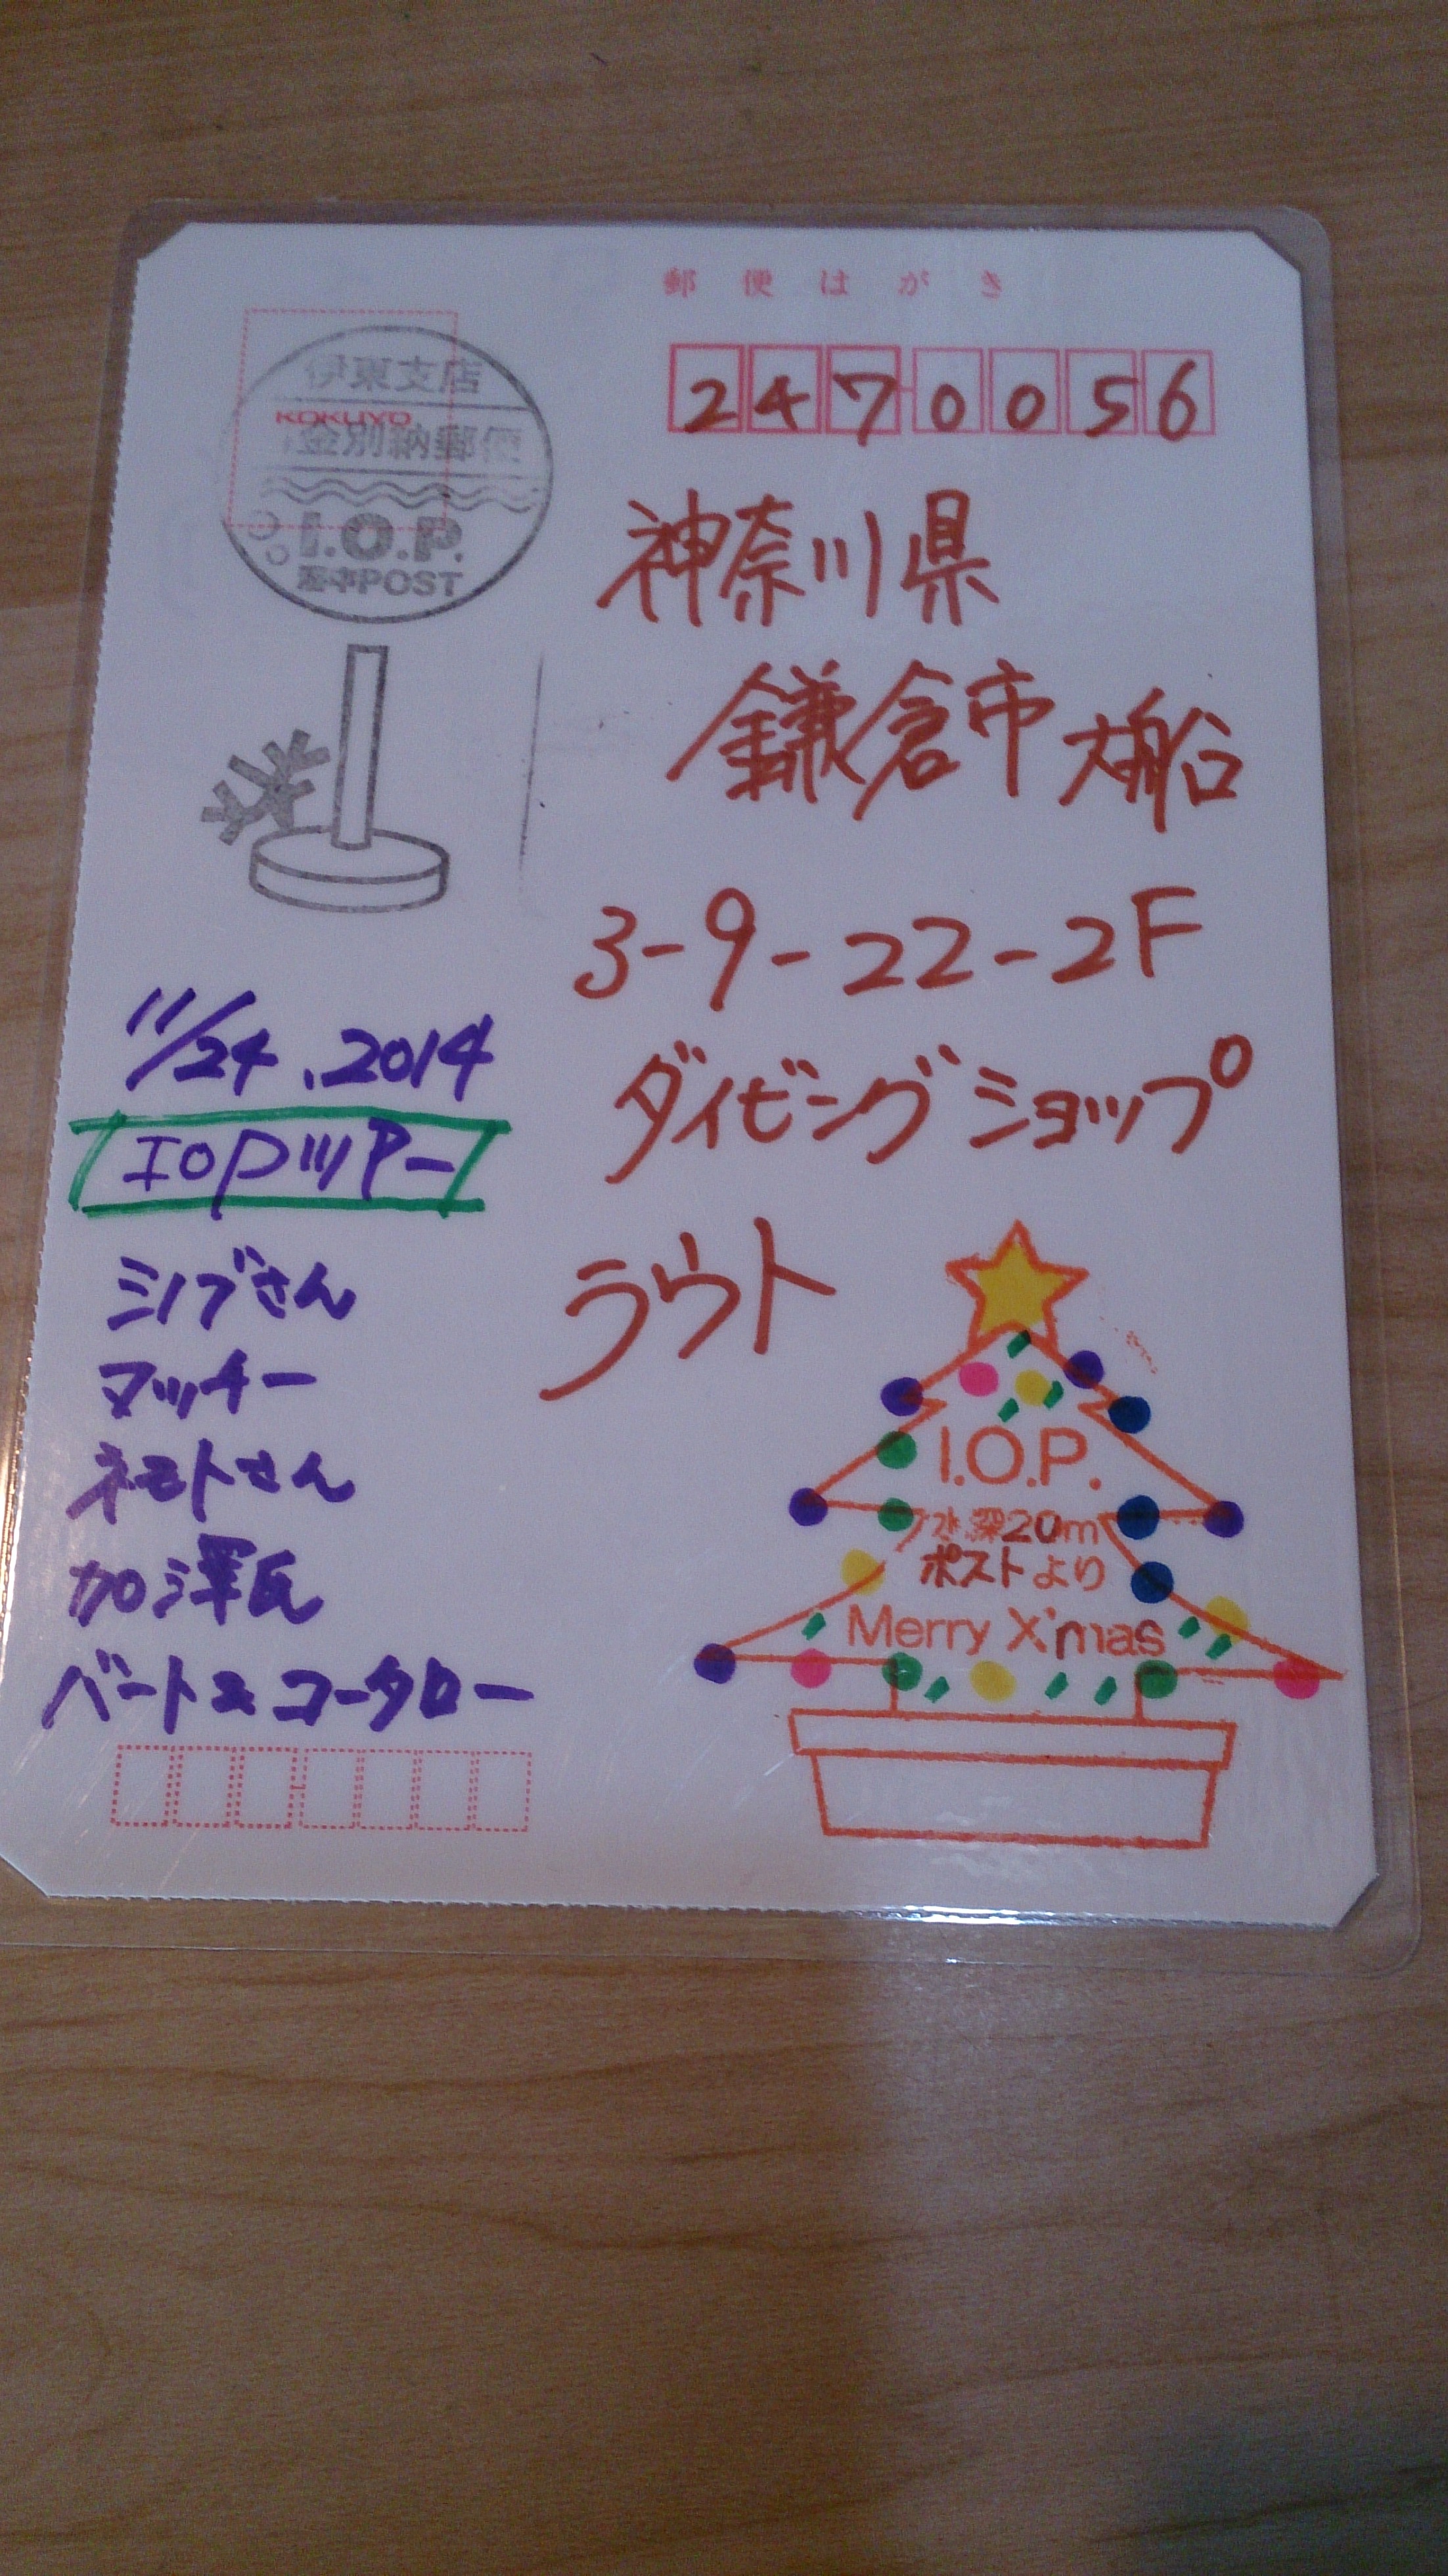 郵便はがき
2470056
伊東支店
KOKUYO
金別納郵便
I.O.P.
海中POST
神奈川県
鎌倉市大船
3-9-22-2F
ダイビングショップ
ラウト
11/24.2014
IOPツアー
シノブさん
マッチー
ネモトさん
加澤氏
バート&コータロー
I.O.P.
水深20m
ポストより
Merry X'mas